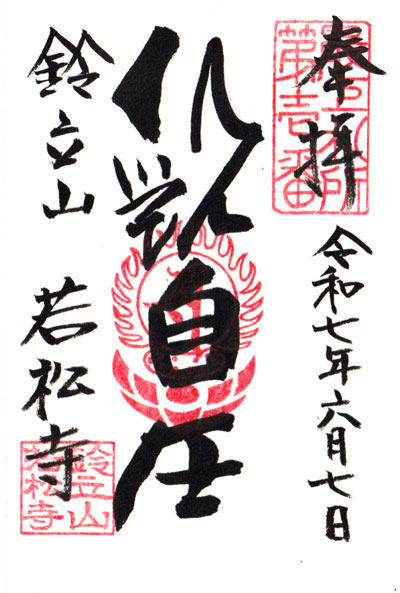 奉拝
第壱番
令和七年六月七日
自在
鈴立山 若松寺
鈴立山
若松寺